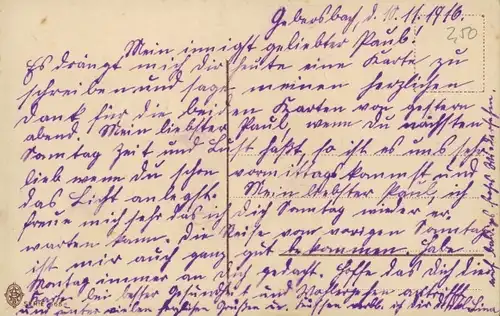 Gebersbach, d. 10.11.1916.
2,50
Mein innigst geliebter Paul!
Es drängt mich dir heute eine Karte zu
schreiben und sage meinen herzlichen
Dank für die beiden Karten von gestern
abend. Mein liebster Paul, wenn du nächsten
Sonntag Zeit und Lust hast, so ist es uns sehr
lieb wenn du schon vormittags kommst und
das Licht anlegst. Mein liebster Paul, ich
freue mich sehr das ich dich Sonntag wieder er-
warten kann. Die Reise vom vorigen Sonntag
ist mir auch ganz gut bekommen. Habe
Montag immer an dich gedacht. Hoffe das dich diese
Karte bei bester Gesundheit und Wohlergehen antrifft
und unter vielen herzlichen Grüßen u. Küssen verb. ich dir